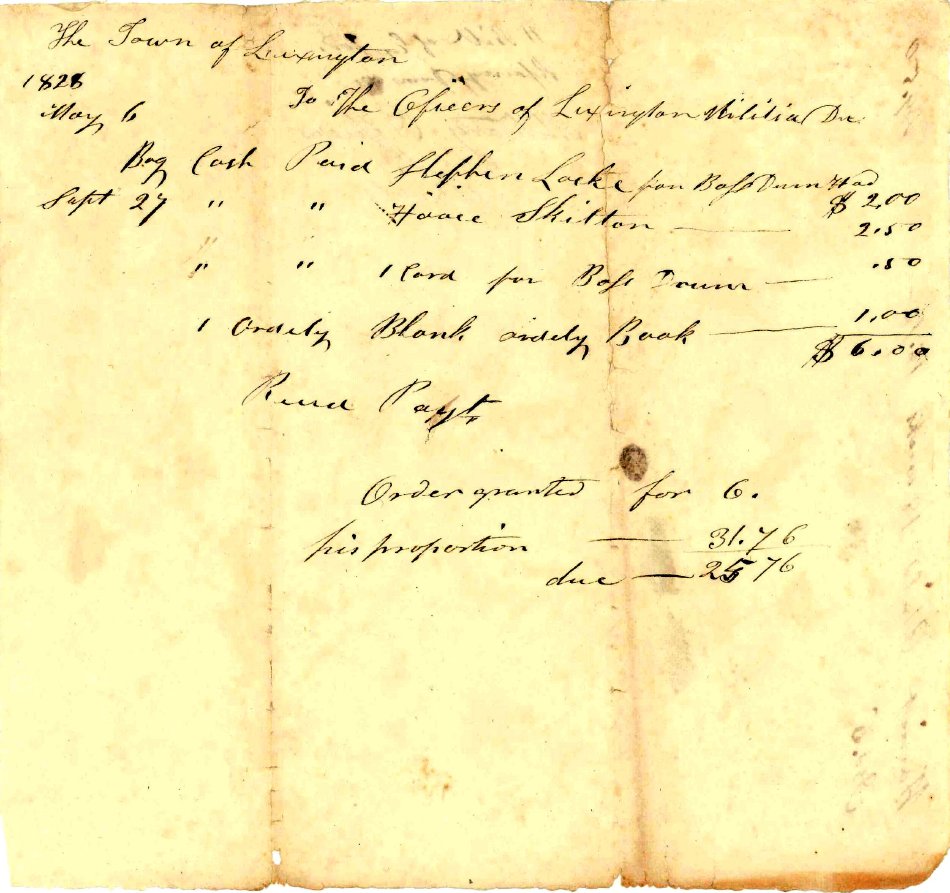 The Town of Lexington
1828
May 6 To The Oficers of Lexington Militia Dr.
Cash Paid Stephen Locke for Bass Drum Head $ 2.00
Sept 27 " " Skilton — 2.50
"
" " 1 Cord for Bass Drum — .50
1 Ordely Blank ordely Book — 1.00
$ 6.00
Payt
Order granted for 6.
his proportion — 31.76
due — 25 76